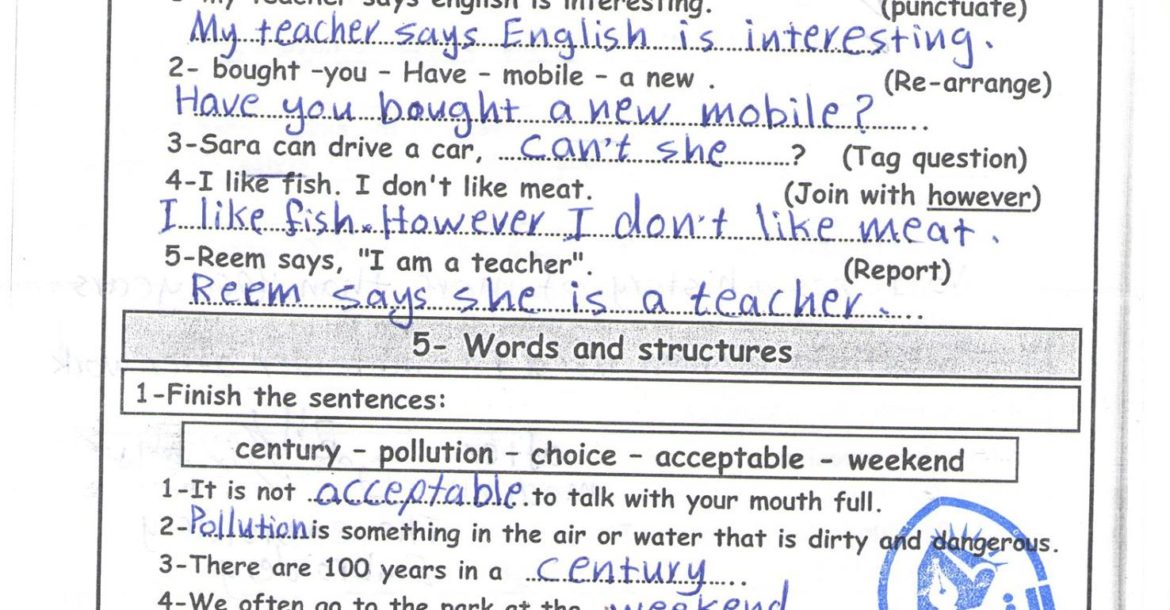 my teacher says english is interesting. (punctuate)
My teacher says English is interesting.
2- bought -you - Have - mobile - a new . (Re-arrange)
Have you bought a new mobile?
3-Sara can drive a car, can't she ? (Tag question)
4-I like fish. I don't like meat. (Join with however)
I like fish. However I don't like meat.
5-Reem says, "I am a teacher". (Report)
Reem says she is a teacher.
5- Words and structures
1-Finish the sentences:
century - pollution - choice - acceptable - weekend
1-It is not acceptable to talk with your mouth full.
2-Pollution is something in the air or water that is dirty and dangerous.
3-There are 100 years in a century
4-We often go to the park at the weekend